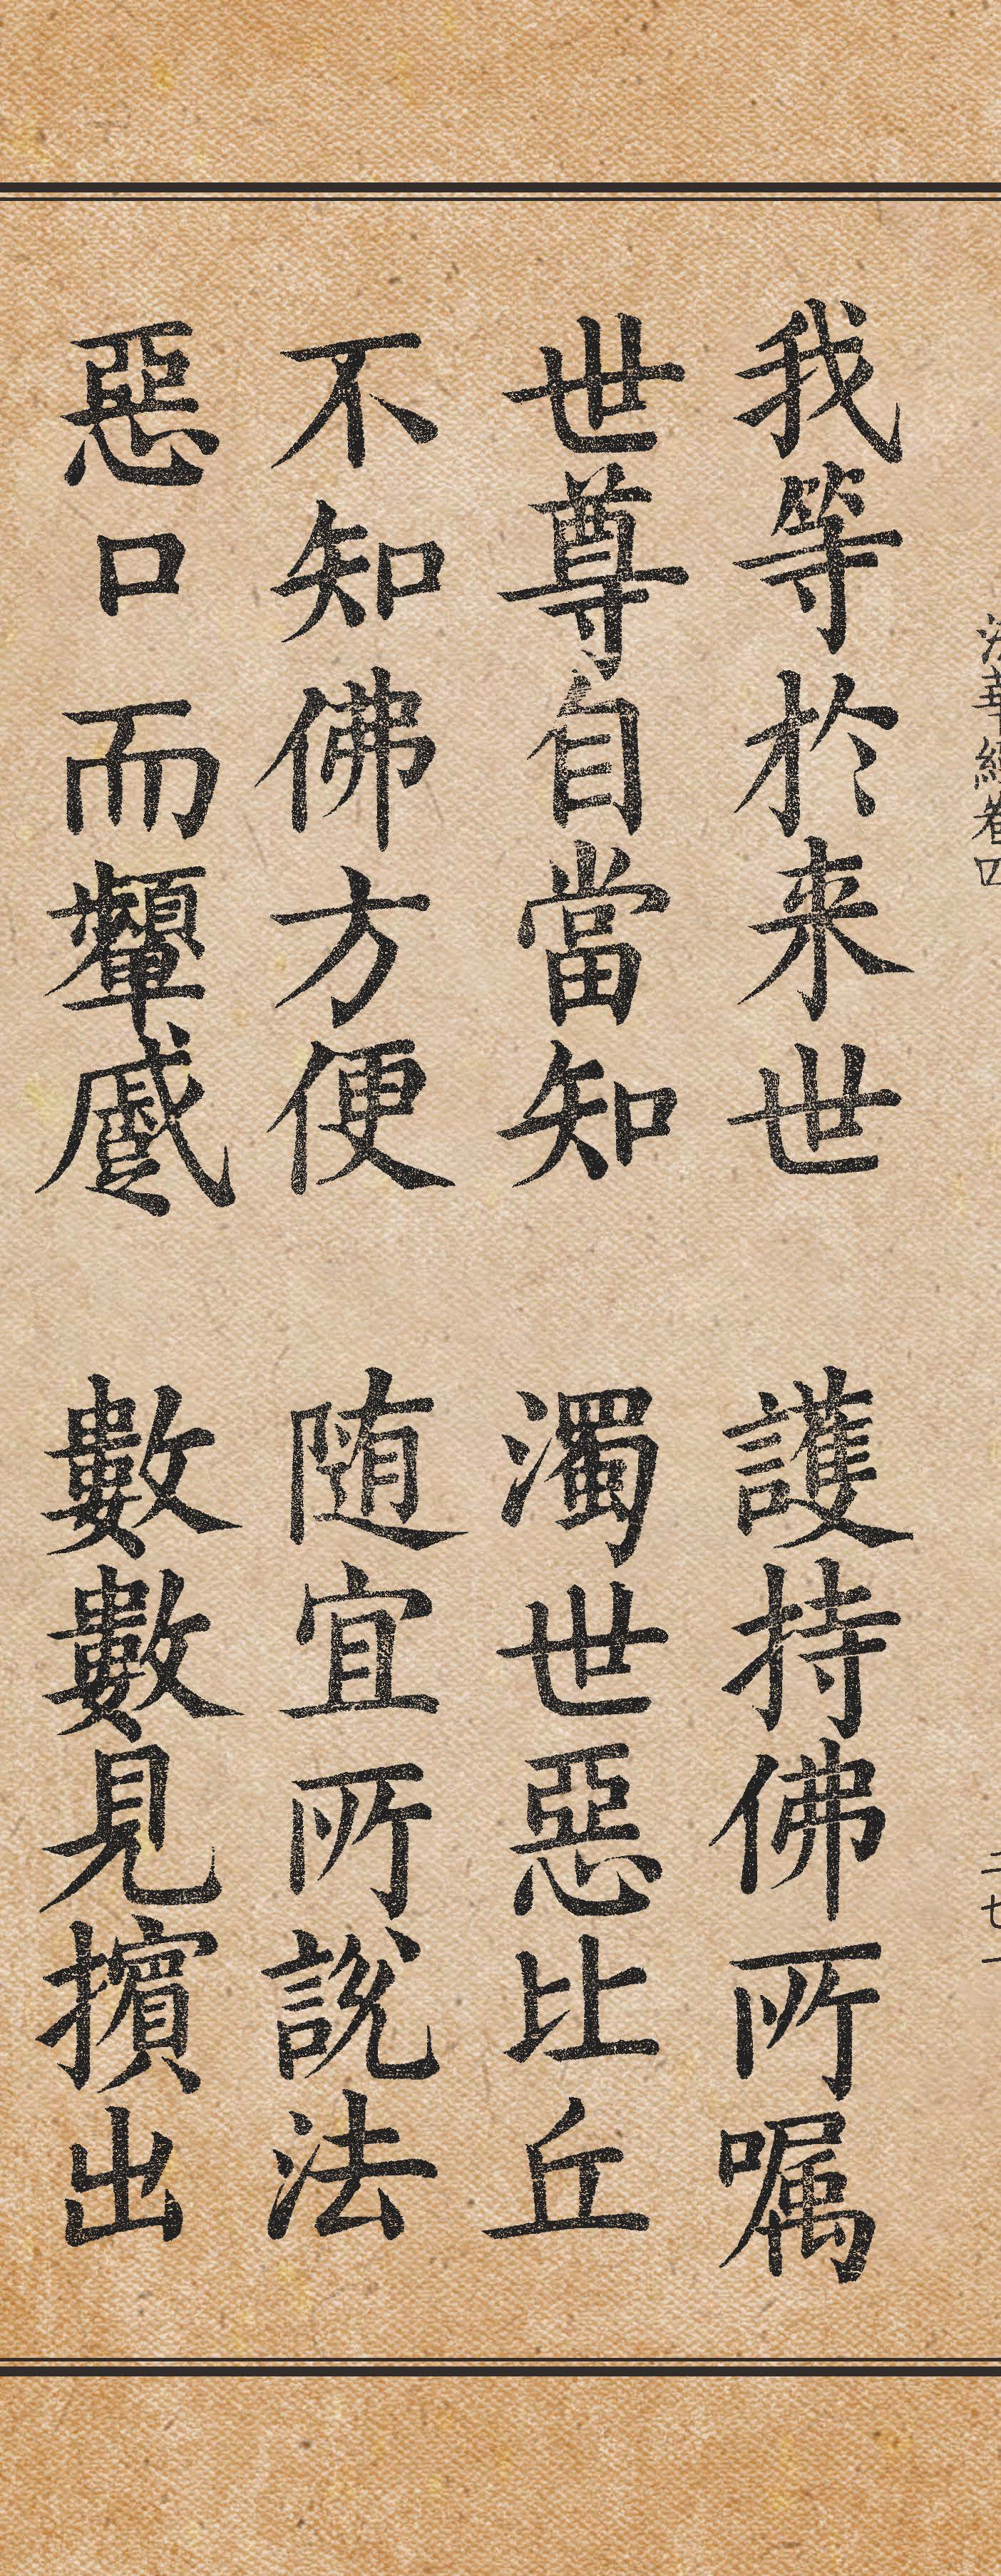 法華經卷四 二七一
我等於来世 護持佛所嘱
世尊自當知 濁世惡比丘
不知佛方便 随宜所說法
惡口而顰蹙 數數見擯出